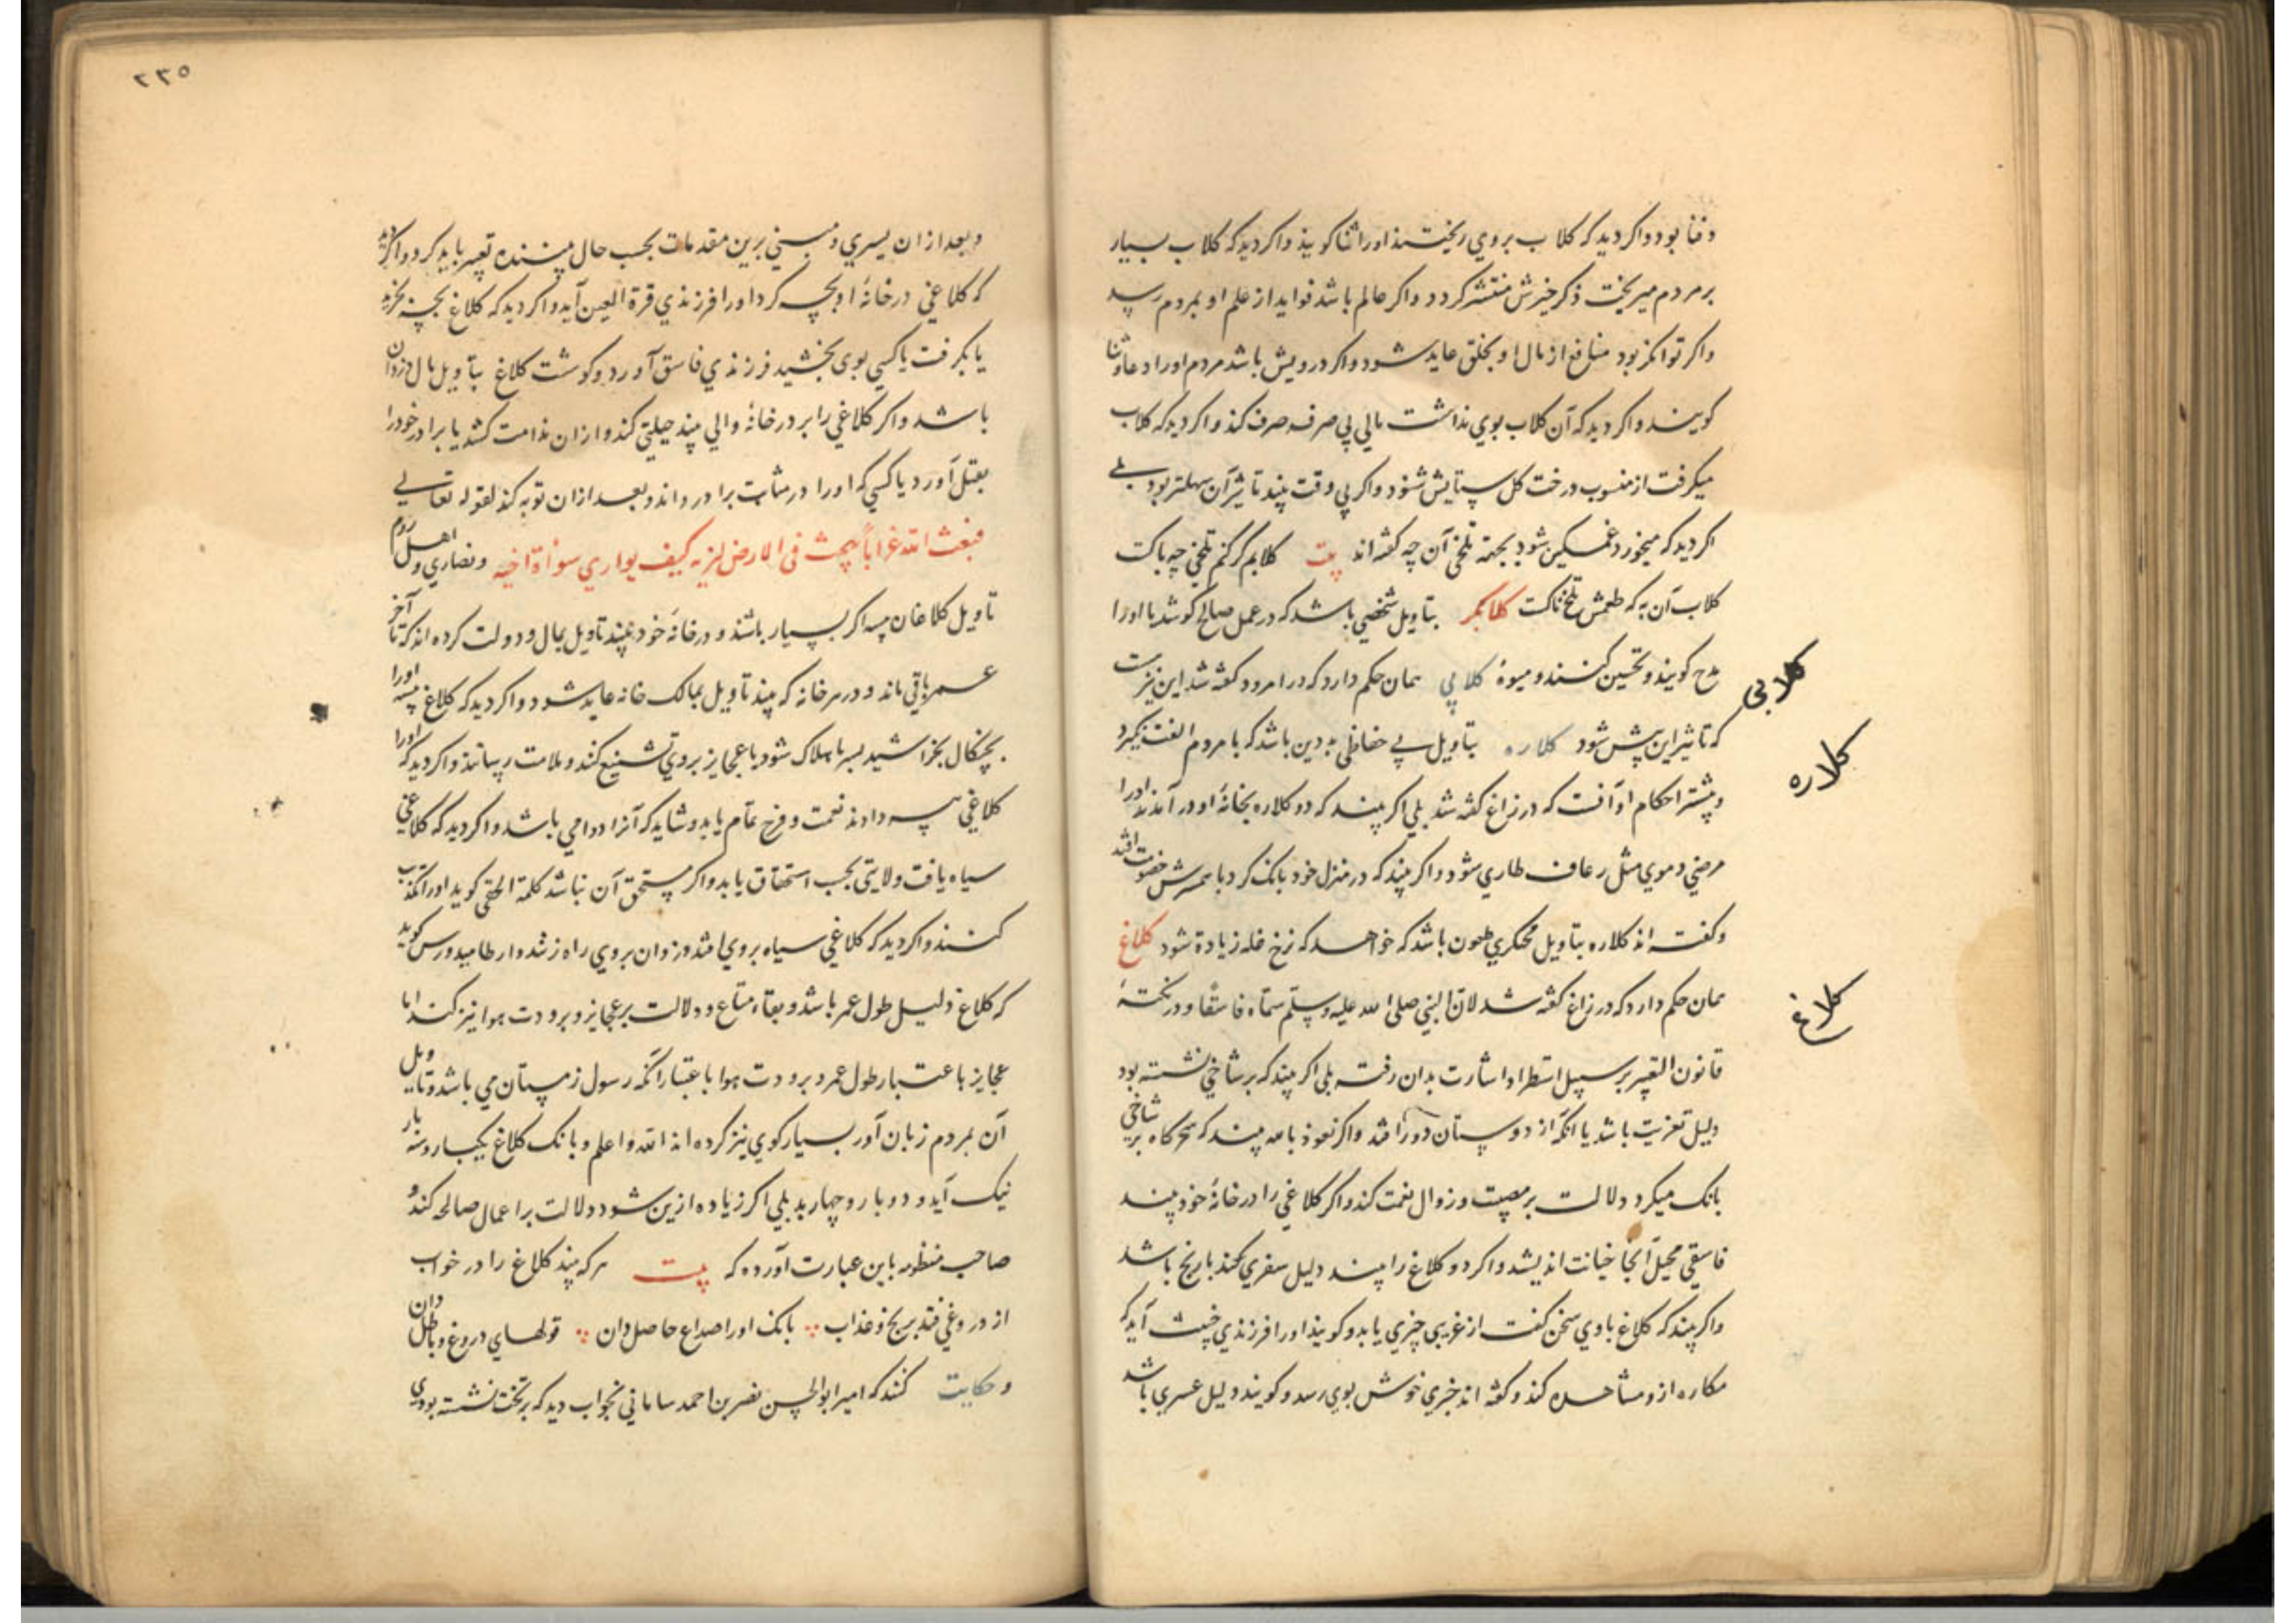 وفنا بود واکر دید که کلاب بروی ریختند اورا ثنا کویند واکر دید که کلاب بسیار
بر مردم میریخت ذکر خیرش منتشر کردد واکر عالم باشد فواید از علم او بمردم رسد
واکر توانکر بود منافع از مال او بخلق عاید شود واکر درویش باشد مردم اورا دعا وثنا
کویند واکر دید که آن کلاب بوی نداشت مالی بی صرفه صرف کند واکر دید که کلاب
میکرفت از منسوب درخت کل ستایش شنود واکر بی وقت بیند تاثیر آن سهلتر بود بلی
اکر دید که میخورد غمکین شود بجهة تلخی آن چه کفته اند بیت کلابم کر کنم تلخی چه باکت
کلاب آن به که طعمش تلخناکت کلابکر بتاویل شخصی باشد که در عمل صالح کوشد یا اورا
مدح کویند وتحسین کنند ومیوهٔ کلابی همان حکم دارد که در امرود کفته شد این نیزست
کلابی
که تاثیر این بیش شود کلاره بتاویل بی حفاظی بد دین باشد که با مردم الفت نکیرد
کلاره
وبیشتر احکام او آنست که در زاغ کفته شد بلی اکر بیند که دو کلاره بخانهٔ او در آمدند اورا
مرضی دموی مثل رعاف طاری شود واکر بیند که در منزل خود بانک کرد با همسرش خصومت افتد
وکفته اند کلاره بتاویل محتکری ملعون باشد که خواهد که نرخ غله زیادة شود کلاغ
همان حکم دارد که در زاغ کفته شد لان النبی صلی الله علیه وسلم سماه فاسقا ودر نکتهٔ
کلاغ
قانون التعبیر بر سبیل استطراد اشارت بدان رفته بلی اکر بیند که بر شاخی نشسته بود
دلیل تعزیت باشد یا آنکه از دوستان دور افتد واکر نعوذ بالله بیند که سحرکاه بر شاخی
بانک میکرد دلالت بر مصیبت وزوال نعمت کند واکر کلاغی را در خانهٔ خود بیند
فاسقی محیل آنجا خیانت اندیشد واکر دو کلاغ را بیند دلیل سفری کند با رنج باشد
واکر بیند که کلاغ با وی سخن کفت از غریبی چیزی یابد وکویند اورا فرزندی خبیث آید که
مکاره ازو مشاهده کند وکفته اند خبری خوش بوی رسد وکویند دلیل عسری باشد
۲۳۵
وبعد ازان یسری ومبنی برین مقدمات بحسب حال بیننده تعبیر باید کرد واکر دید
که کلاغی در خانهٔ او بچه کرد اورا فرزندی قرة العین آید واکر دید که کلاغ بچه بخرید
یا بکرفت یا کسی بوی بخشید فرزندی فاسق آورد وکوشت کلاغ بتاویل مال دزدان
باشد واکر کلاغی را بر در خانهٔ والی بیند حیلتی کند وازان ندامت کشد یا برادر خودرا
بقتل آورد یا کسی که اورا در مثابت برادر داند وبعد ازان توبه کند لقوله تعالی
فبعث الله غرابا یبحث فی الارض لیریه کیف یواری سوأة اخیه ونصاری واهل روم
تاویل کلاغان سیه اکر بسیار باشند ودر خانهٔ خود بیند تاویل بمال ودولت کرده اند که تا آخر
عمر باقی ماند ودر هر خانه که بیند تاویل بمالک خانه عاید شود واکر دید که کلاغ سیه اورا
بچنکال بخراشید بسرما هلاک شود یا عجایز بروی تشنیع کند وملامت رسانند واکر دید که اورا
کلاغی سیه دادند نعمت وفرح تمام یابد وشاید که آنرا دوامی باشد واکر دید که کلاغی
سیاه یافت ولایتی بحسب استحقاق یابد واکر مستحق آن نباشد کلمة الحقی کوید اورا تکذیب
کنند واکر دید که کلاغی سیاه بروی افتد دزدان بروی راه زنند وارطامیدورس کوید
که کلاغ دلیل طول عمر باشد وبقاء متاع ودلالت بر عجایز وبرودت هوا نیز کند اما
عجایز باعتبار طول عمر وبرودت هوا باعتبار آنکه رسول زمستان می باشد وتاویل
آن بمردم زبان آور بسیار کوی نیز کرده اند الله واعلم وبانک کلاغ یکبار وسه بار
نیک آید ودو بار وچهار بد بلی اکر زیاده ازین شود دلالت بر اعمال صالحه کند و
صاحب منظومه باین عبارت آورده که بیت هر که بیند کلاغ را در خواب
از دروغی فتد برنج وعذاب بانک اورا صداع حاصل دان قولهای دروغ وباطل دان
وحکایت کنند که امیر ابوالحسن نصر بن احمد سامانی بخواب دید که بر تخت نشسته بودی